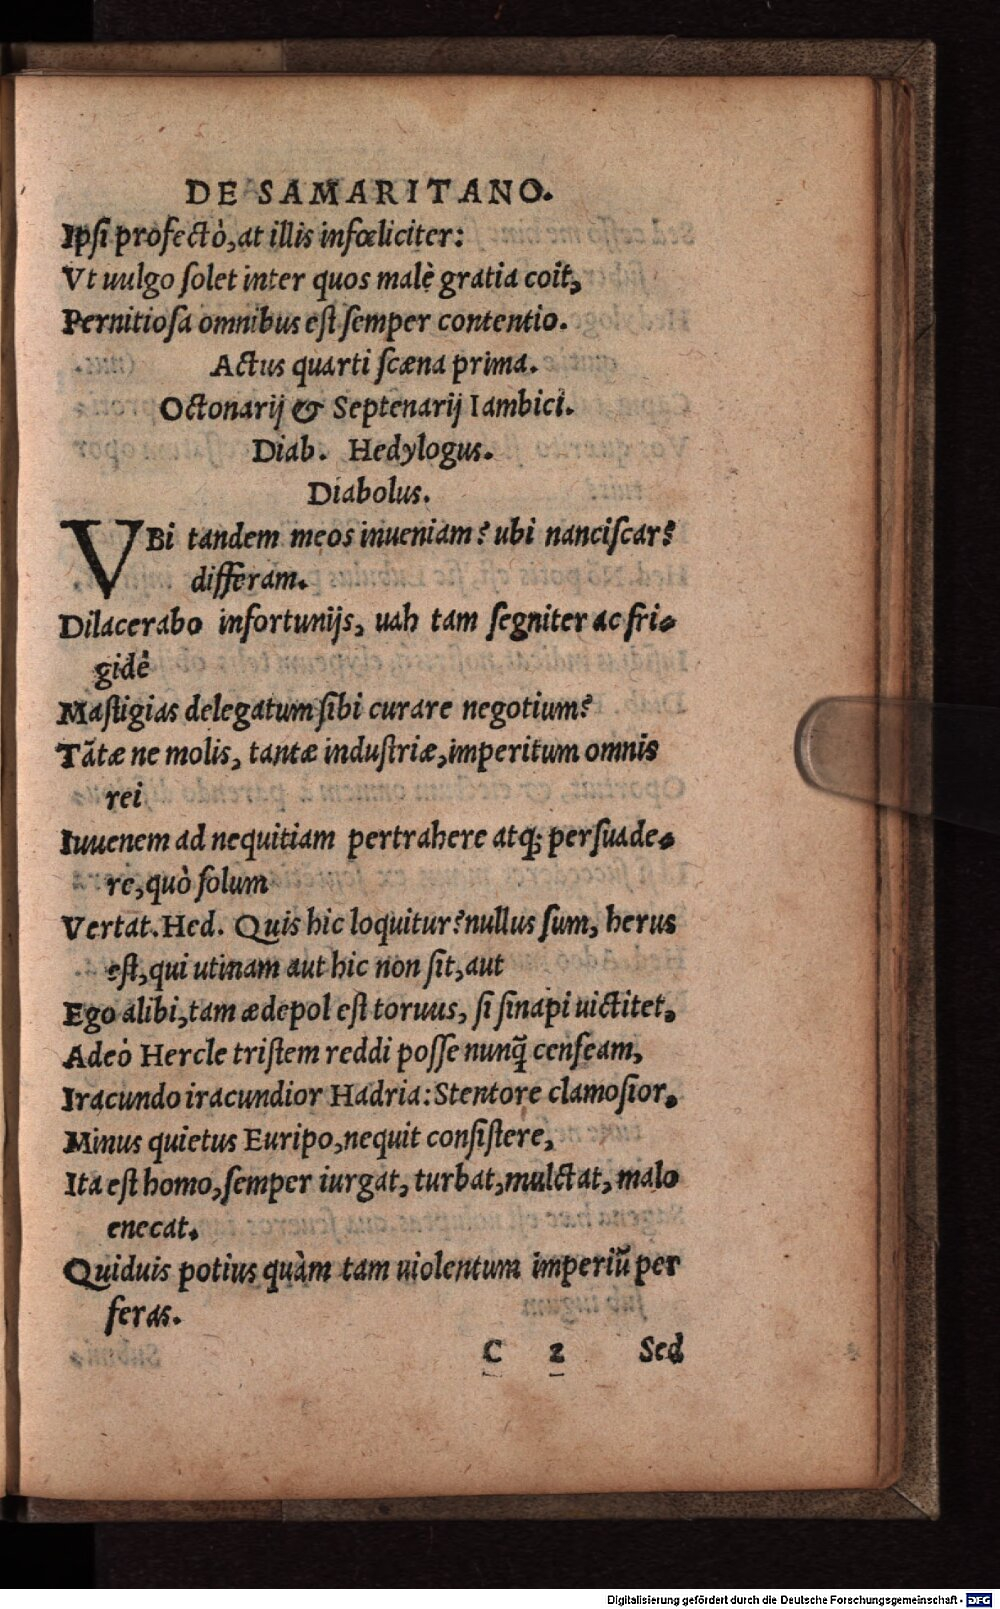 DE SAMARITANO.
Ipsi profectò, at illis infœliciter:
Vt uulgo solet inter quos malè gratia coit,
Pernitiosa omnibus est semper contentio.
Actus quarti scæna prima.
Octonarij & Septenarij Iambici.
Diab. Hedylogus.
Diabolus.
VBi tandem meos inueniam? ubi nanciscar?
differam.
Dilacerabo infortunijs, uah tam segniter ac fri-
gidè
Mastigias delegatum sibi curare negotium?
Tātæ ne molis, tantæ industriæ, imperitum omnis
rei
Iuuenem ad nequitiam pertrahere atq; persuade-
re, quò solum
Vertat. Hed. Quis hic loquitur? nullus sum, herus
est, qui utinam aut hic non sit, aut
Ego alibi, tam ædepol est toruus, si sinapi uictitet,
Adeò Hercle tristem reddi posse nunq̃ censeam,
Iracundo iracundior Hadria: Stentore clamosior,
Minus quietus Euripo, nequit consistere,
Ita est homo, semper iurgat, turbat, mulctat, malo
enecat.
Quiduis potius quàm tam uiolentum imperiū per
feras.
C 2 Sed
Digitalisierung gefördert durch die Deutsche Forschungsgemeinschaft - DFG